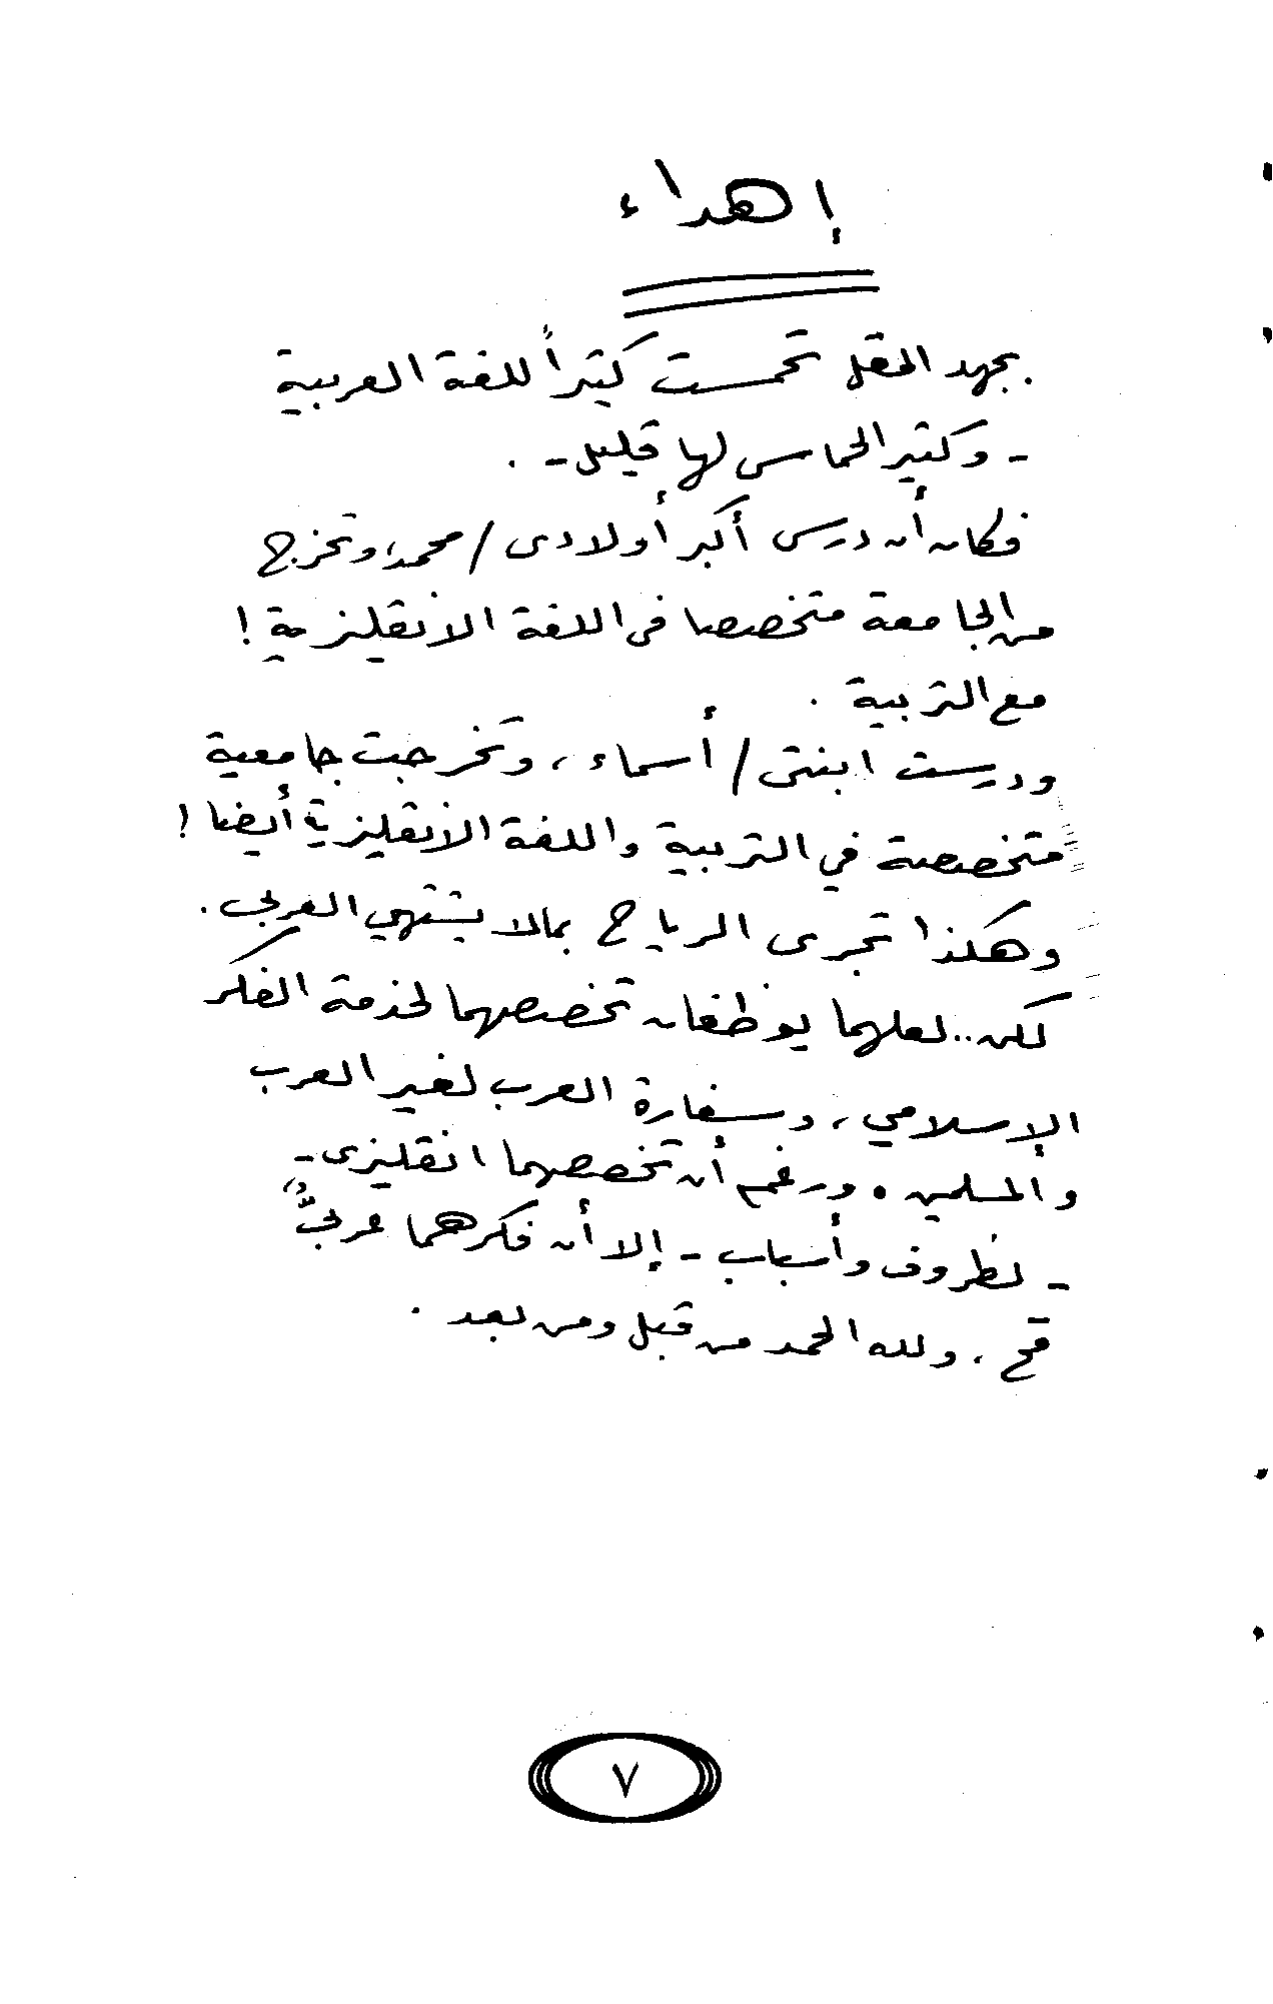 إهداء
بجهد المقل تحمست كثيراً للغة العربية
- وكثير الحماس لها قليل - .
فكان أن درس أكبر أولادى / محمد، وتخرج
من الجامعة متخصصا فى اللغة الانقليزية !
مع التربية .
ودرست ابنتى / أسماء ، وتخرجت جامعية
متخصصة في التربية واللغة الانقليزية أيضا !
وهكذا تجرى الرياح بمالا يشتهي العربى .
لكن .. لعلهما يوظفان تخصصهما لخدمة الفكر
الإسلامي ، وسفارة العرب لغير العرب
والمسلمين . ورغم أن تخصصهما انقليزى -
- لظروف وأسباب - إلا أن فكرهما عربىٌّ
قح ، ولله الحمد من قبل ومن بعد .
٧